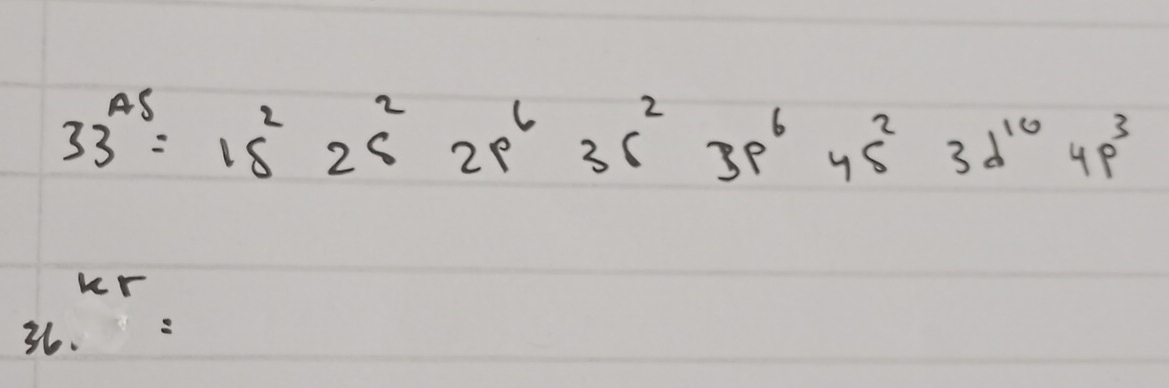 33 As = 1s² 2s² 2p⁶ 3s² 3p⁶ 4s² 3d¹⁰ 4p³
kr
36. =